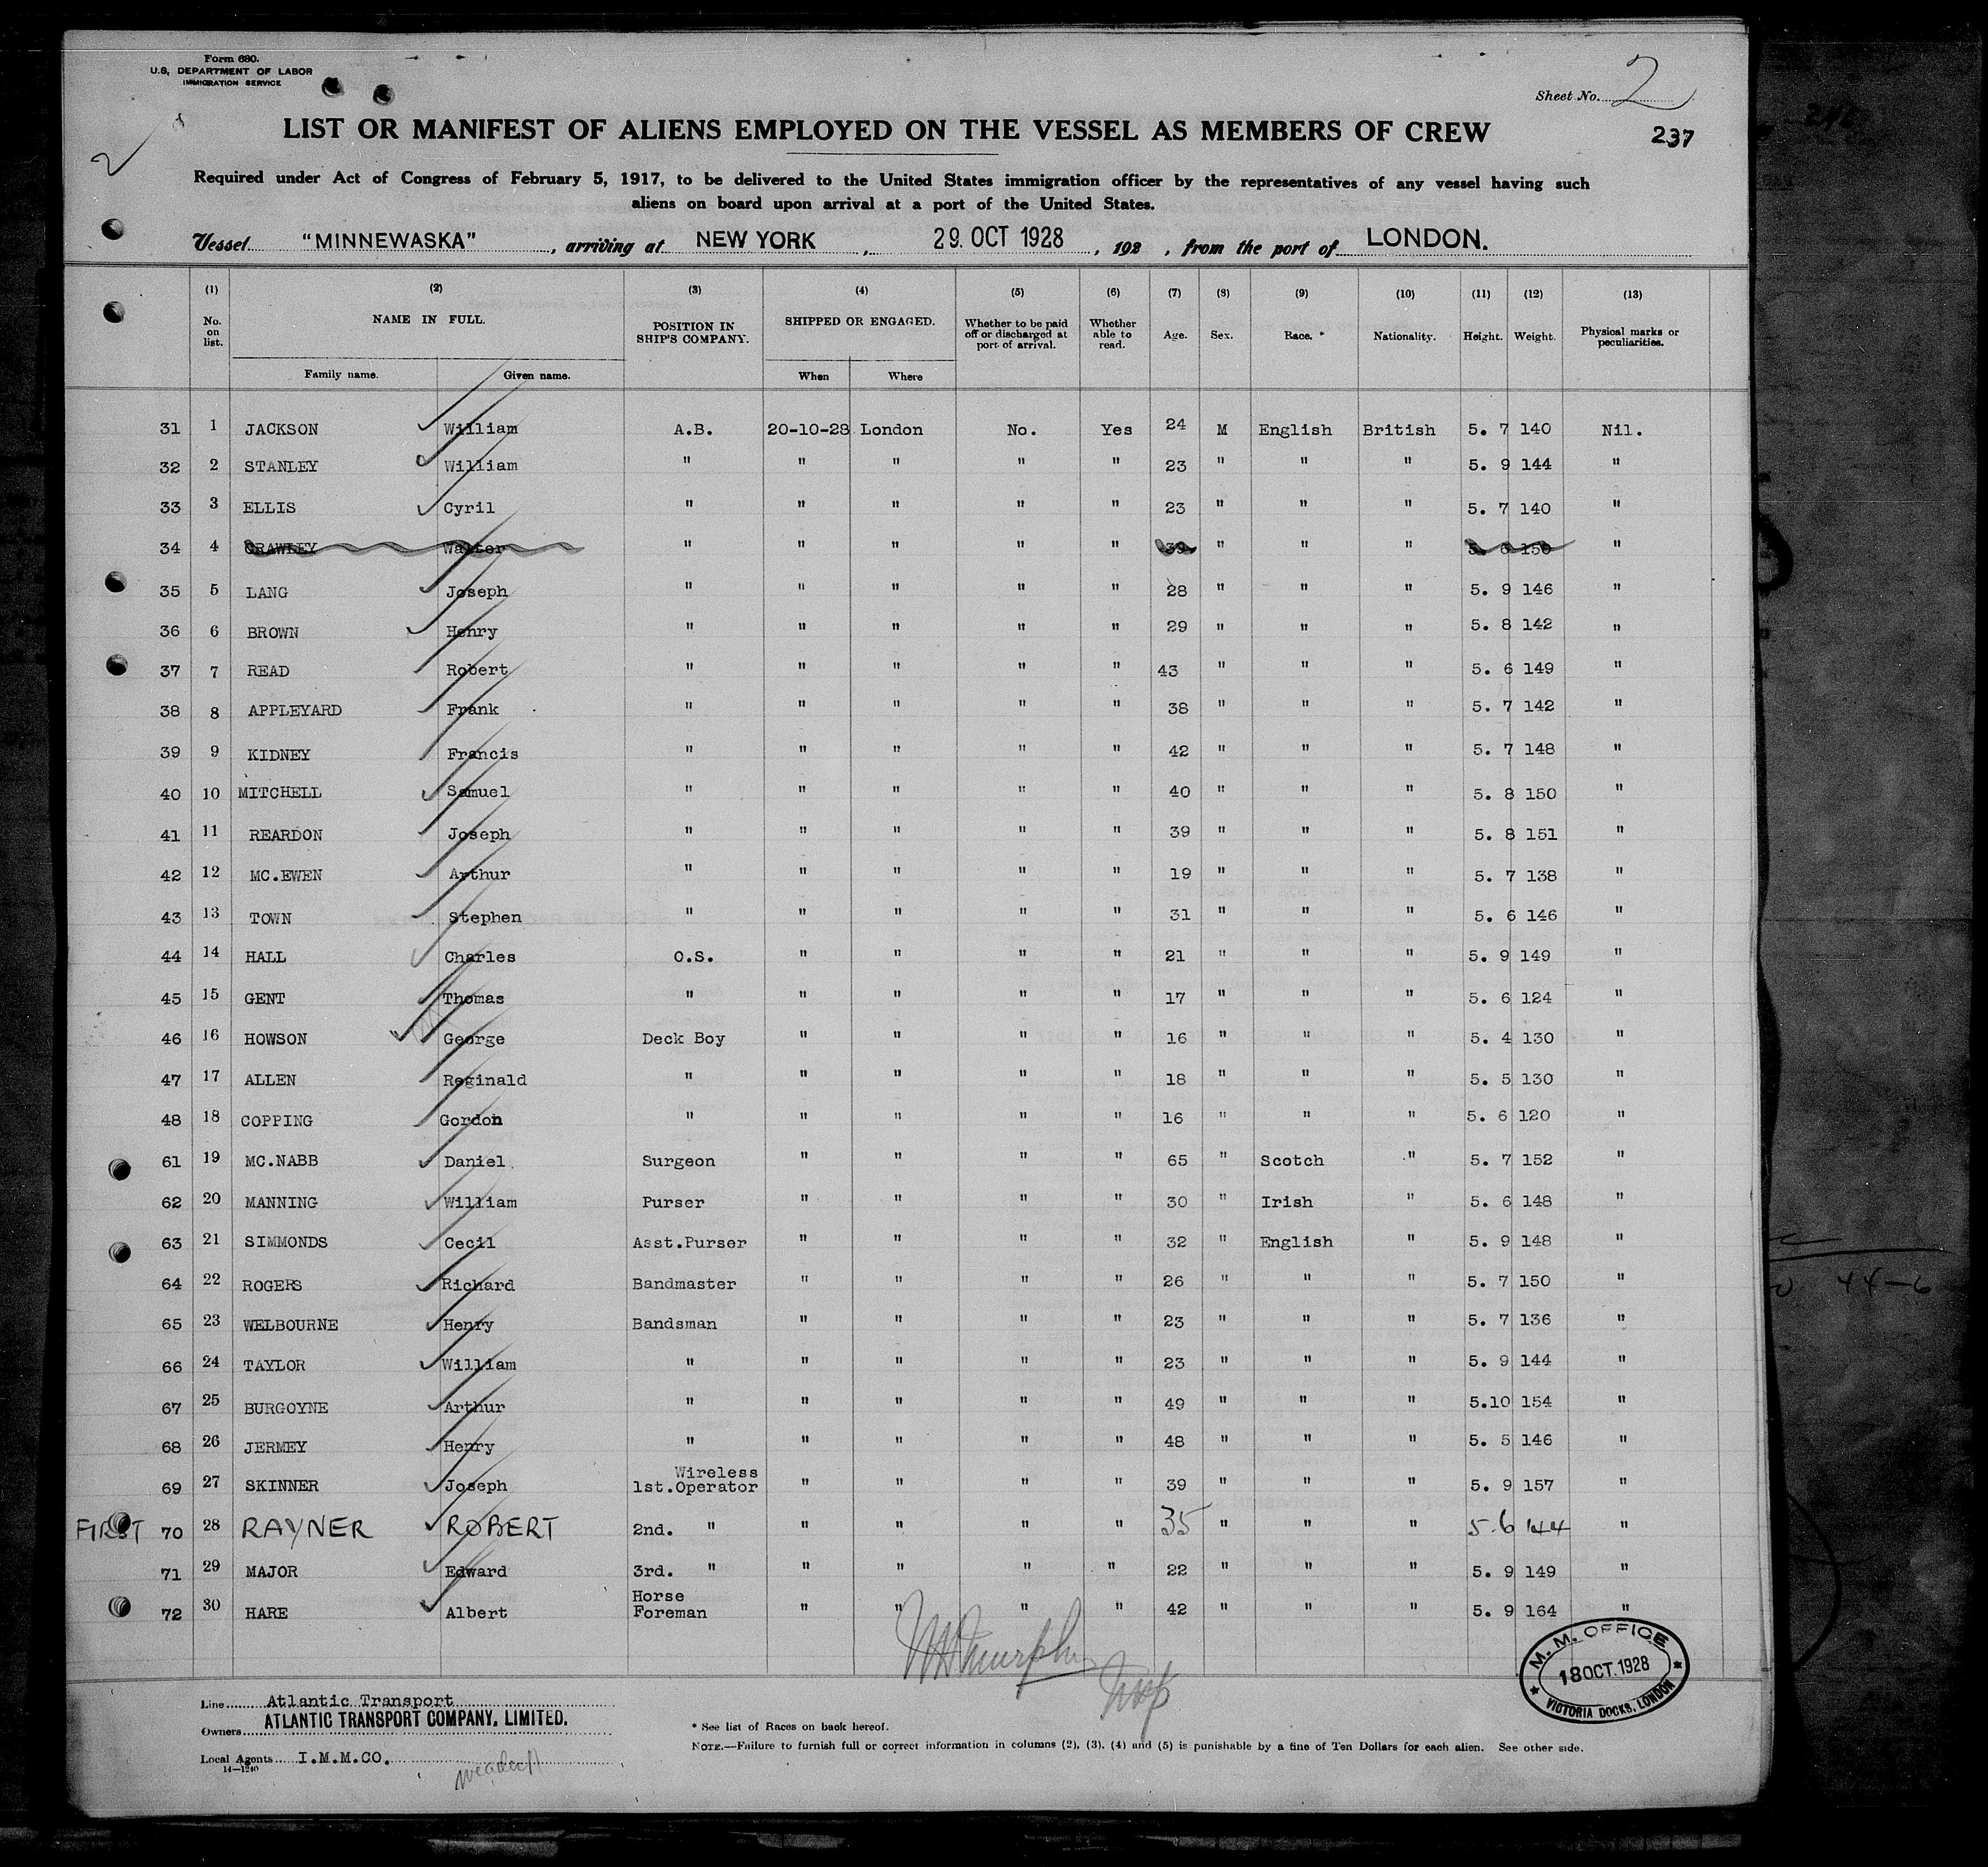 Form 680.
U.S. DEPARTMENT OF LABOR
IMMIGRATION SERVICE
Sheet No. 2
LIST OR MANIFEST OF ALIENS EMPLOYED ON THE VESSEL AS MEMBERS OF CREW
237
2
Required under Act of Congress of February 5, 1917, to be delivered to the United States immigration officer by the representatives of any vessel having such
aliens on board upon arrival at a port of the United States.
Vessel "MINNEWASKA", arriving at NEW YORK, 29. OCT 1928, 192 , from the port of LONDON.
(1) (2) (3) (4) (5) (6) (7) (8) (9) (10) (11) (12) (13)
No. on list. NAME IN FULL. POSITION IN SHIP'S COMPANY. SHIPPED OR ENGAGED. Whether to be paid off or discharged at port of arrival. Whether able to read. Age. Sex. Race. * Nationality. Height. Weight. Physical marks or peculiarities.
Family name. Given name. When Where
31 1 JACKSON William A.B. 20-10-28 London No. Yes 24 M English British 5. 7 140 Nil.
32 2 STANLEY William " " " " " 23 " " " 5. 9 144 "
33 3 ELLIS Cyril " " " " " 23 " " " 5. 7 140 "
34 4 CRAWLEY Walter " " " " " 39 " " " 5. 6 150 "
35 5 LANG Joseph " " " " " 28 " " " 5. 9 146 "
36 6 BROWN Henry " " " " " 29 " " " 5. 8 142 "
37 7 READ Robert " " " " " 43 " " " 5. 6 149 "
38 8 APPLEYARD Frank " " " " " 38 " " " 5. 7 142 "
39 9 KIDNEY Francis " " " " " 42 " " " 5. 7 148 "
40 10 MITCHELL Samuel " " " " " 40 " " " 5. 8 150 "
41 11 REARDON Joseph " " " " " 39 " " " 5. 8 151 "
42 12 MC.EWEN Arthur " " " " " 19 " " " 5. 7 138 "
43 13 TOWN Stephen " " " " " 31 " " " 5. 6 146 "
44 14 HALL Charles O.S. " " " " 21 " " " 5. 9 149 "
45 15 GENT Thomas " " " " " 17 " " " 5. 6 124 "
46 16 HOWSON George Deck Boy " " " " 16 " " " 5. 4 130 "
47 17 ALLEN Reginald " " " " " 18 " " " 5. 5 130 "
48 18 COPPING Gordon " " " " " 16 " " " 5. 6 120 "
61 19 MC.NABB Daniel Surgeon " " " " 65 " Scotch " 5. 7 152 "
62 20 MANNING William Purser " " " " 30 " Irish " 5. 6 148 "
63 21 SIMMONDS Cecil Asst.Purser " " " " 32 " English " 5. 9 148 "
64 22 ROGERS Richard Bandmaster " " " " 26 " " " 5. 7 150 "
65 23 WELBOURNE Henry Bandsman " " " " 23 " " " 5. 7 136 "
66 24 TAYLOR William " " " " " 23 " " " 5. 9 144 "
67 25 BURGOYNE Arthur " " " " " 49 " " " 5.10 154 "
68 26 JERMEY Henry " " " " " 48 " " " 5. 5 146 "
Wireless
69 27 SKINNER Joseph 1st.Operator " " " " 39 " " " 5. 9 157 "
FIRST 70 28 RAYNER ROBERT 2nd. " " " " " 35 " " " 5.6 144 "
71 29 MAJOR Edward 3rd. " " " " " 22 " " " 5. 9 149 "
Horse
72 30 HARE Albert Foreman " " " " 42 " " " 5. 9 164 "
M. M. OFFICE
18 OCT. 1928
VICTORIA DOCKS, LONDON
Line Atlantic Transport
Owners ATLANTIC TRANSPORT COMPANY, LIMITED.
Local Agents I.M.M.CO.
14—1240
* See list of Races on back hereof.
NOTE.—Failure to furnish full or correct information in columns (2), (3), (4) and (5) is punishable by a fine of Ten Dollars for each alien. See other side.
44-6